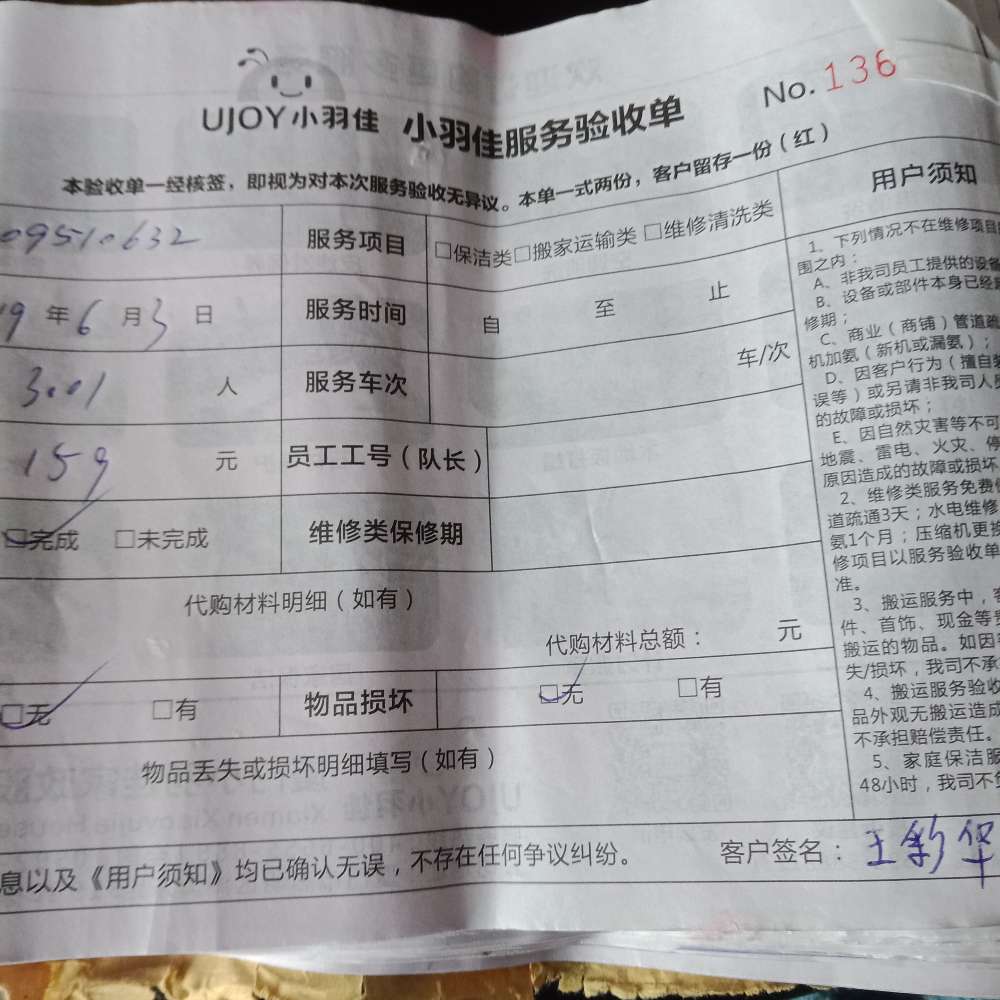 UJOY小羽佳 小羽佳服务验收单 No.136
本验收单一经核签，即视为对本次服务验收无异议。本单一式两份，客户留存一份（红）
09510632 服务项目 □保洁类□搬家运输类 □维修清洗类
9年6月3日 服务时间 自 至 止
3.01 人 服务车次 车/次
159 元 员工工号（队长）
□完成 □未完成 维修类保修期
代购材料明细（如有）
代购材料总额： 元
□无 □有 物品损坏 □无 □有
物品丢失或损坏明细填写（如有）
息以及《用户须知》均已确认无误，不存在任何争议纠纷。 客户签名：王彩华
用户须知
1、下列情况不在维修项目
围之内：
A、非我司员工提供的设备
B、设备或部件本身已经
修期；
C、商业（商铺）管道疏
机加氨（新机或漏氨）；
D、因客户行为（擅自
误等）或另请非我司人
的故障或损坏；
E、因自然灾害等不可
地震、雷电、火灾、停
原因造成的故障或损坏
2、维修类服务免费
道疏通3天；水电维修
氨1个月；压缩机更
修项目以服务验收单
准。
3、搬运服务中，
件、首饰、现金等
搬运的物品。如因
失/损坏，我司不承
4、搬运服务验收
品外观无搬运造成
不承担赔偿责任。
5、家庭保洁服
48小时，我司不